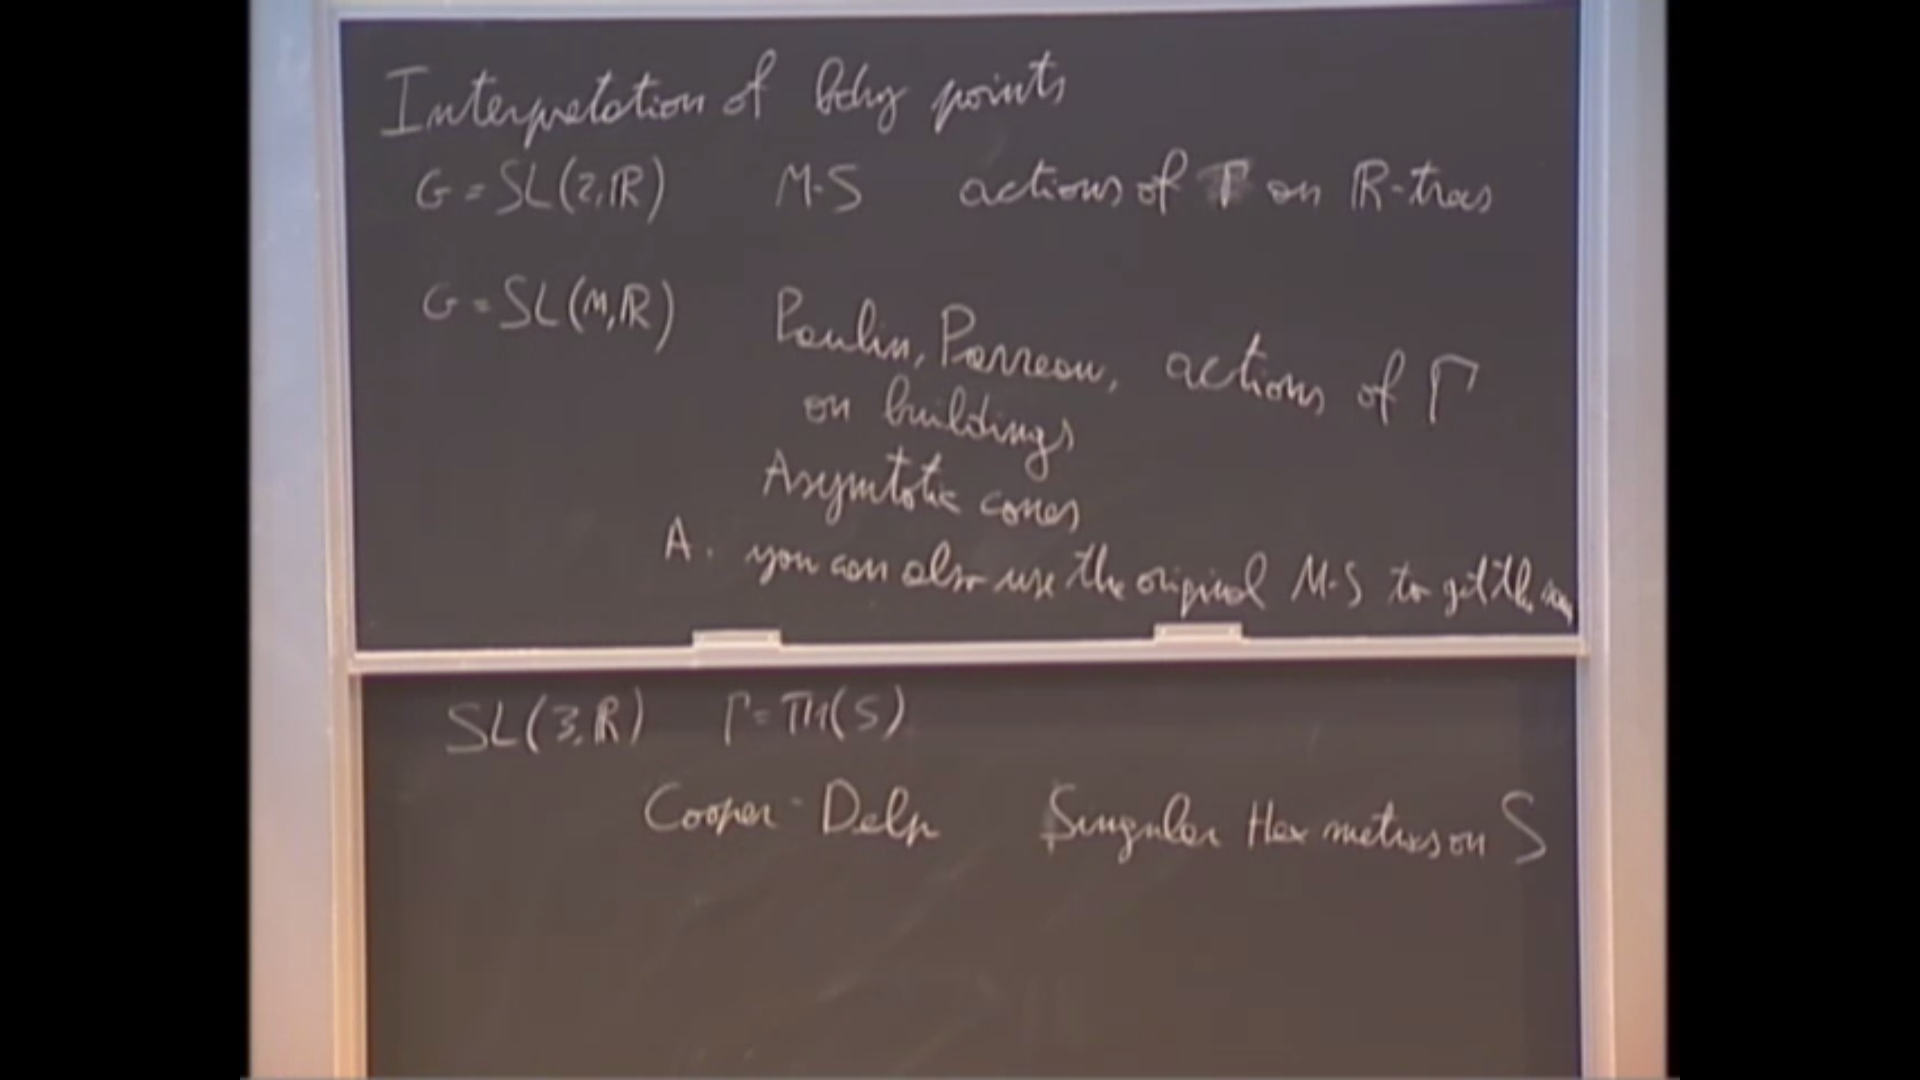 Interpretation of bdry points
G = SL(2,ℝ) M-S actions of Γ on ℝ-trees
G = SL(n,ℝ) Paulin, Parreau, actions of Γ
on buildings
Asymtotic cones
A. you can also use the original M-S to get the
SL(3,ℝ) Γ = π1(S)
Cooper - Delp Singular Hex metrics on S